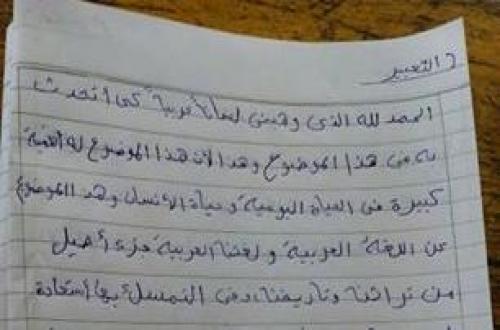 ( التعبير
الحمد لله الذى وهبنى لسانا عربية كى أتحدث
به فى هذا الموضوع وهد الان هذا الموضوع له أهمية
كبيرة فى الحياة اليومية وحياة الأنسان وهد الموضوع
عن اللغة العربية ولغتنا العربية جزء أصيل
من تراثنا وتاريخنا، وفى التمسك بها استعادة